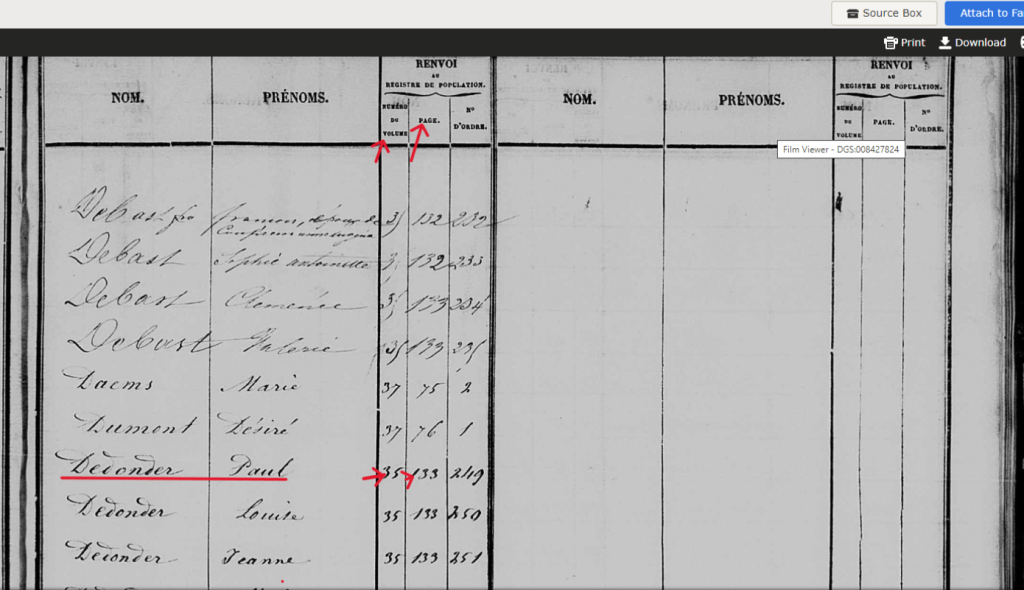 Source Box
Attach to Fa
Print
Download
RENVOI
AU
REGISTRE DE POPULATION.
NOM.
PRÉNOMS.
NUMÉRO
DU
VOLUME
PAGE.
N°
D'ORDRE.
RENVOI
AU
REGISTRE DE POPULATION.
NOM.
PRÉNOMS.
NUMÉRO
DU
VOLUME
PAGE.
N°
D'ORDRE.
Film Viewer - DGS:008427824
DeBast 35 132 232
Debast Sophie antoinette 132 233
Debast Clemence 35 133 234
Debast Valerie 35 133 235
Daems Marie 37 75 2
Dumont Désiré 37 76 1
Dedonder Paul 35 133 249
Dedonder Louise 35 133 250
Dedonder Jeanne 35 133 251